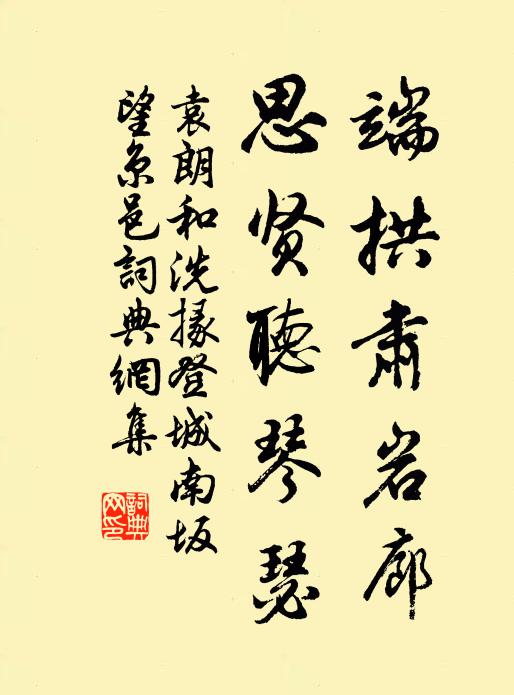 端拱肃岩廊
思贤聽琴瑟
袁朗和洗掾登城南坂
望京邑詞典網集
詞典網印